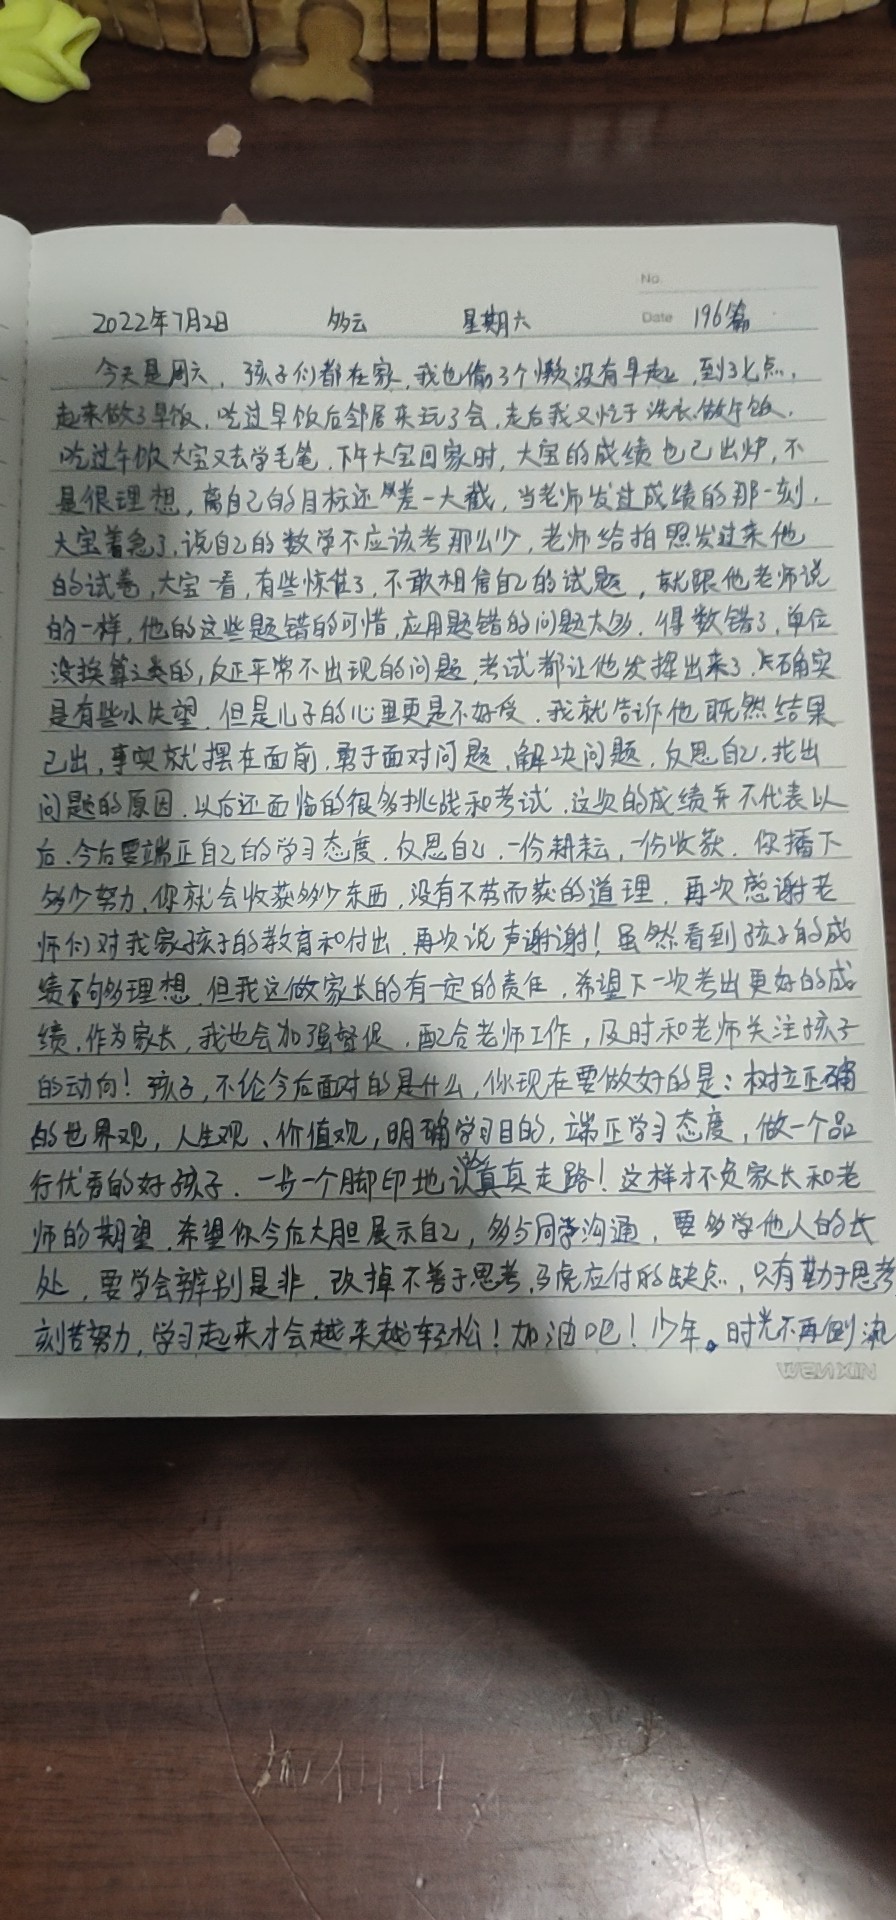 No.
2022年7月2日 多云 星期六 Date 196篇
今天是周六，孩子们都在家，我也偷了个懒没有早起，到了七点，
起来做了早饭，吃过早饭后邻居来玩了会，走后我又忙于洗衣.做午饭.
吃过午饭大宝又去学毛笔，下午大宝回家时，大宝的成绩也已出炉，不
是很理想，离自己的目标还差一大截，当老师发过成绩的那一刻，
大宝着急了，说自己的数学不应该考那么少，老师给拍照发过来他
的试卷，大宝一看，有些惊住了，不敢相信自己的试题，就跟他老师说
的一样，他的这些题错的可惜，应用题错的问题太多，得数错了，单位
没换算之类的，反正平常不出现的问题，考试都让他发挥出来了，确实
是有些小失望，但是儿子的心里更是不好受，我就告诉他既然结果
已出，事实就摆在面前，勇于面对问题，解决问题，反思自己，找出
问题的原因，以后还面临的很多挑战和考试，这次的成绩并不代表以
后，今后要端正自己的学习态度，反思自己，一份耕耘，一份收获，你播下
多少努力，你就会收获多少东西，没有不劳而获的道理，再次感谢老
师们对我家孩子的教育和付出，再次说声谢谢！虽然看到孩子的成
绩不够理想，但我这做家长的有一定的责任，希望下一次考出更好的成
绩，作为家长，我也会加强督促，配合老师工作，及时和老师关注孩子
的动向！孩子，不论今后面对的是什么，你现在要做好的是：树立正确
的世界观，人生观、价值观，明确学习目的，端正学习态度，做一个品
行优秀的好孩子，一步一个脚印地认真真走路！这样才不负家长和老
师的期望，希望你今后大胆展示自己，多与同学沟通，要多学他人的长
处，要学会辨别是非，改掉不善于思考，马虎应付的缺点，只有勤于思考
刻苦努力，学习起来才会越来越轻松！加油吧！少年。时光不再倒流
WENXIN